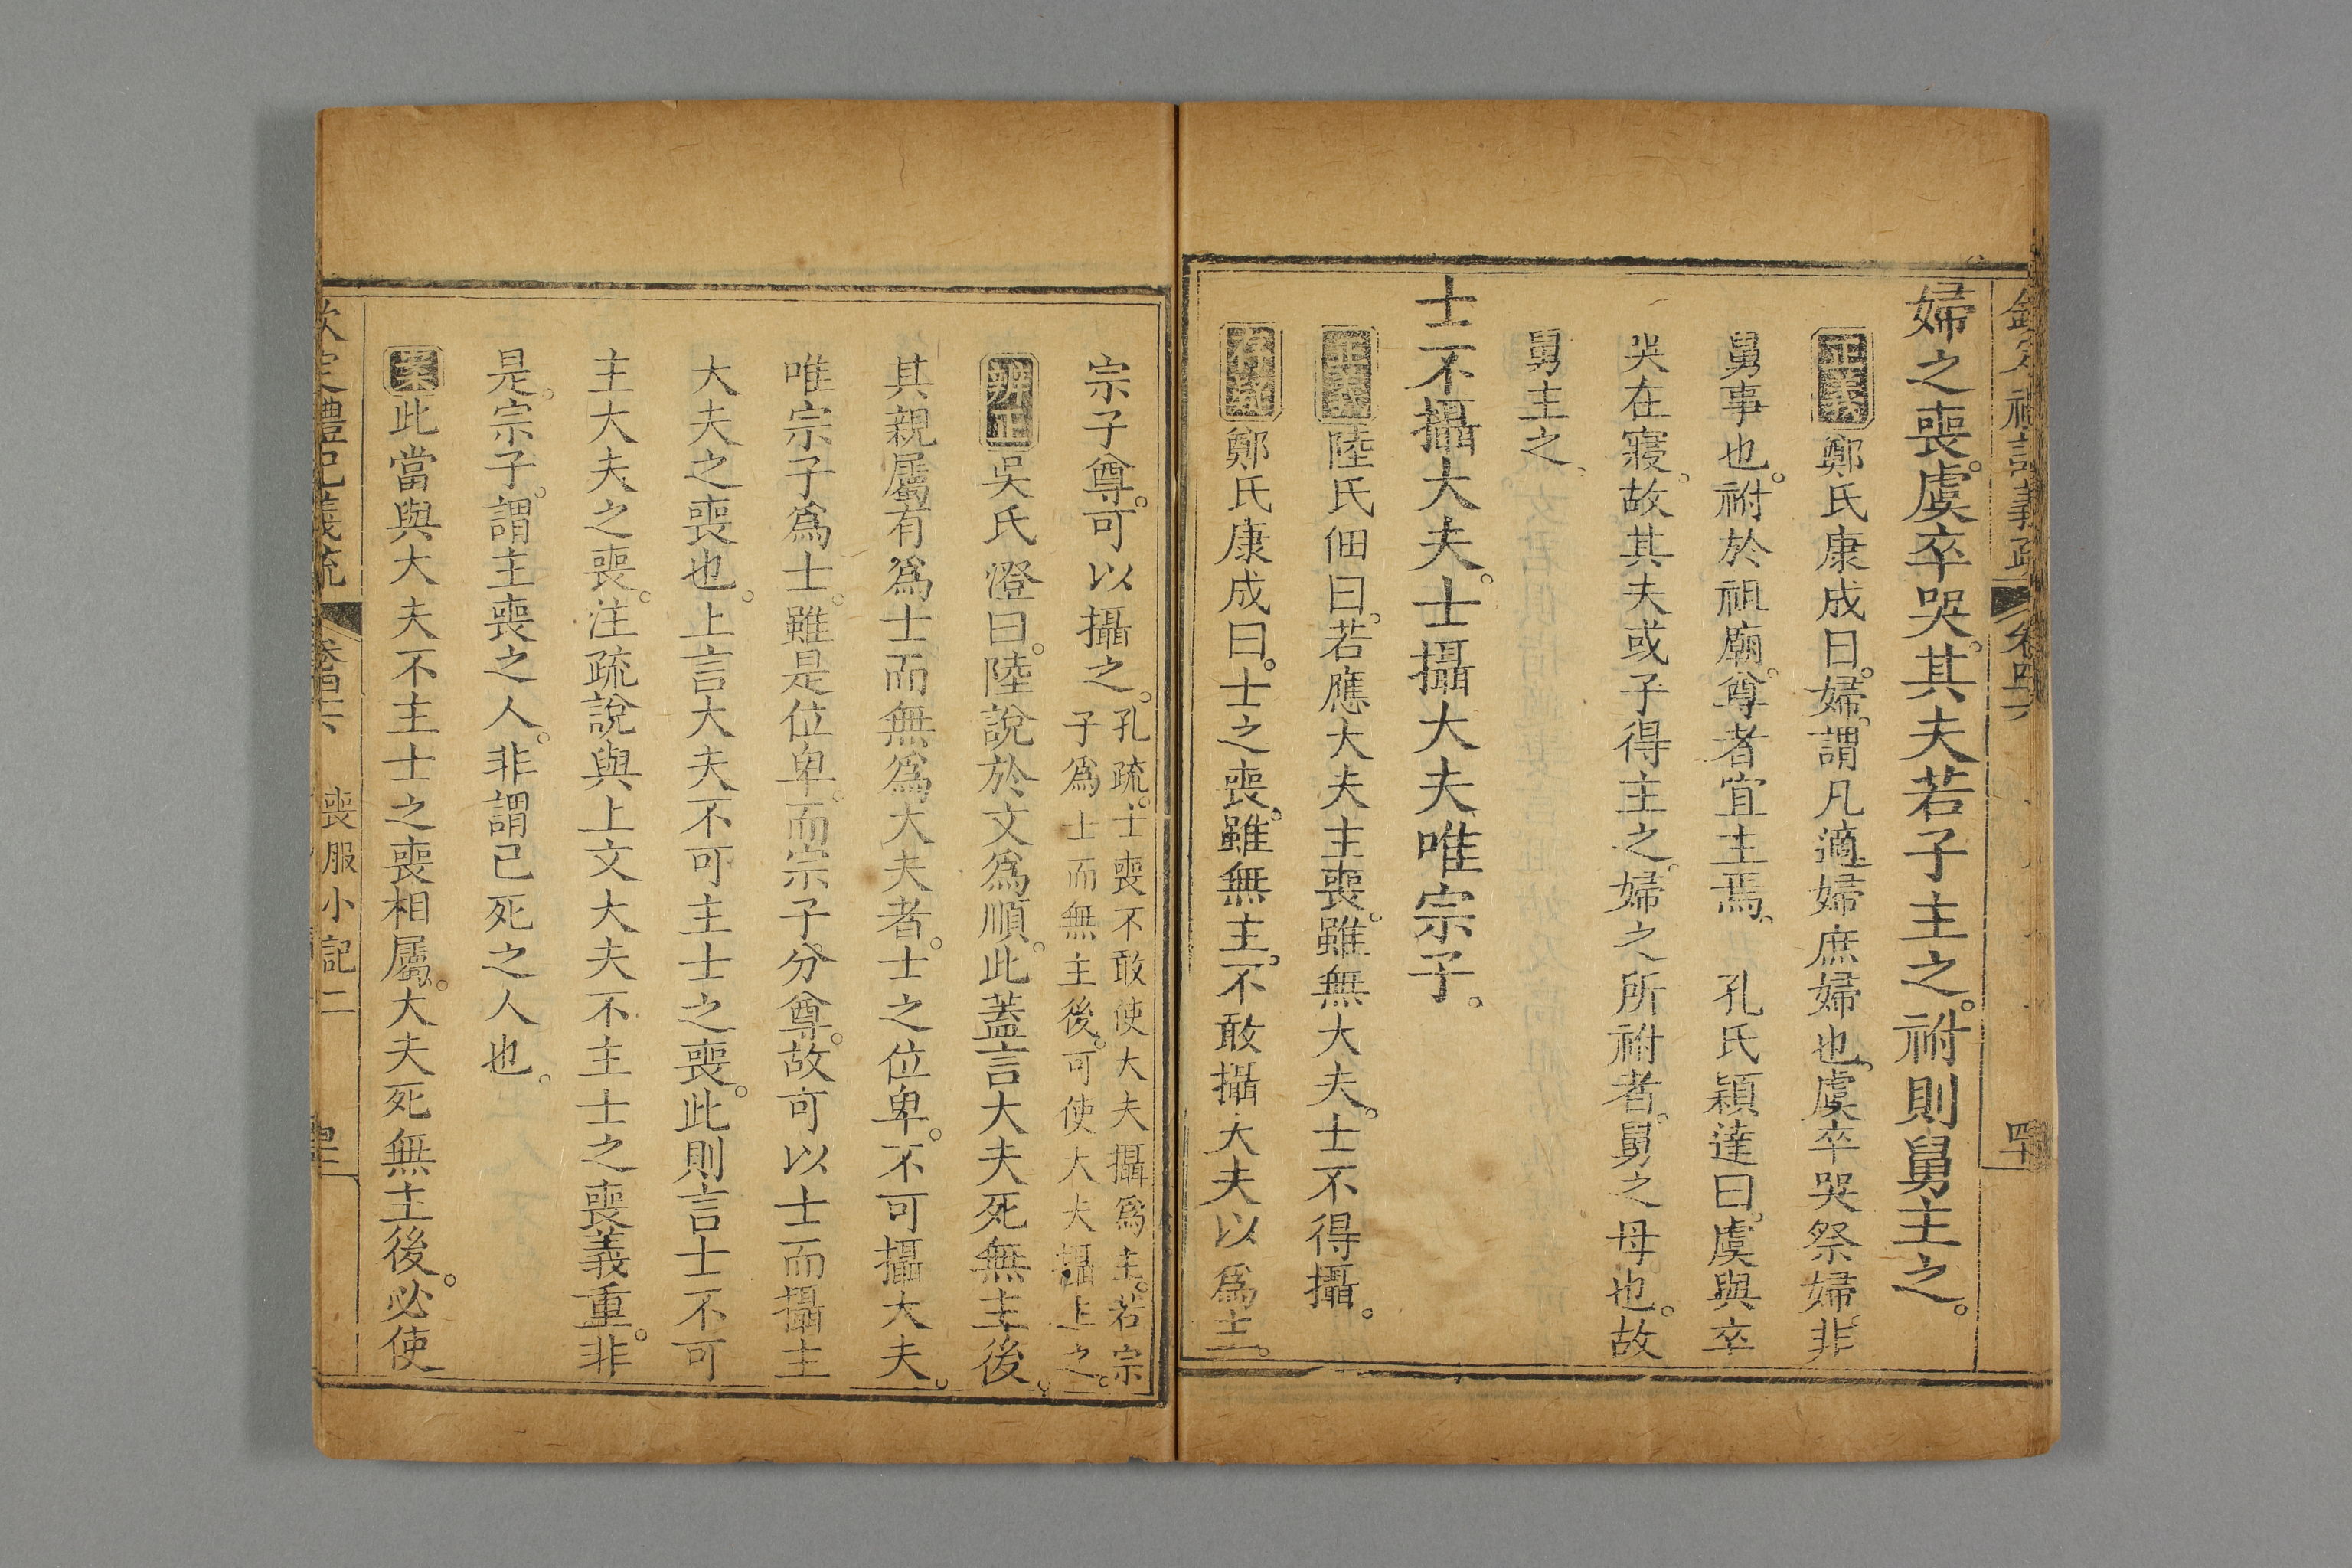 欽定禮記義疏 卷四十六
婦之喪。虞卒哭。其夫若子主之。祔則舅主之。
正義鄭氏康成曰。婦。謂凡適婦庶婦也。虞卒哭祭婦。非
舅事也。祔於祖廟。尊者宜主焉。 孔氏穎達曰。虞與卒
哭在寢。故其夫或子得主之。婦之所祔者。舅之母也。故
舅主之。
士不攝大夫。士攝大夫唯宗子。
正義陸氏佃曰。若應大夫主喪。雖無大夫。士不得攝。
存疑鄭氏康成曰。士之喪。雖無主。不敢攝大夫以爲主。
宗子尊。可以攝之。孔疏。士喪不敢使大夫攝爲主。若宗
子爲士而無主後。可使大夫攝主之。
辨正吳氏澄曰。陸說於文爲順。此蓋言大夫死無主後。
其親屬有爲士而無爲大夫者。士之位卑。不可攝大夫。
唯宗子爲士。雖是位卑。而宗子分尊。故可以士而攝主
大夫之喪也。上言大夫不可主士之喪。此則言士不可
主大夫之喪。注疏說與上文大夫不主士之喪義重。非
是。宗子。謂主喪之人。非謂已死之人也。
案此當與大夫不主士之喪相屬。大夫死無主後。必使
欽定禮記義疏 卷四十六 喪服小記二